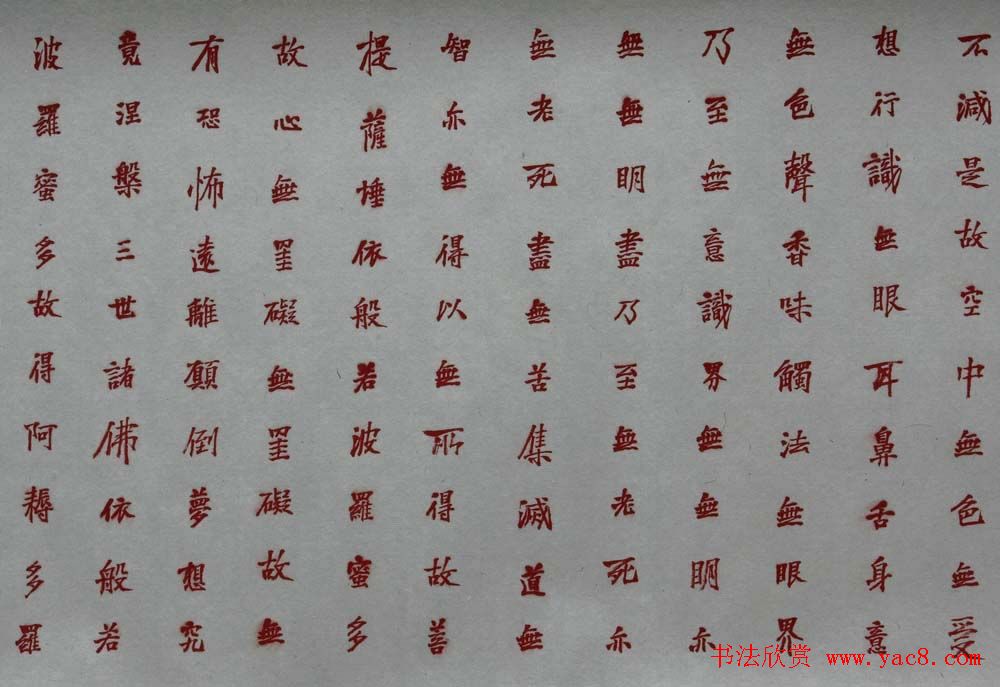 不減是故空中無色無受
想行識無眼耳鼻舌身意
無色聲香味觸法無眼界
乃至無意識界無無明亦
無無明盡乃至無老死亦
無老死盡無苦集滅道無
智亦無得以無所得故菩
提薩埵依般若波羅蜜多
故心無罣礙無罣礙故無
有恐怖遠離顛倒夢想究
竟涅槃三世諸佛依般若
波羅蜜多故得阿耨多羅
书法欣赏 www.yac8.com